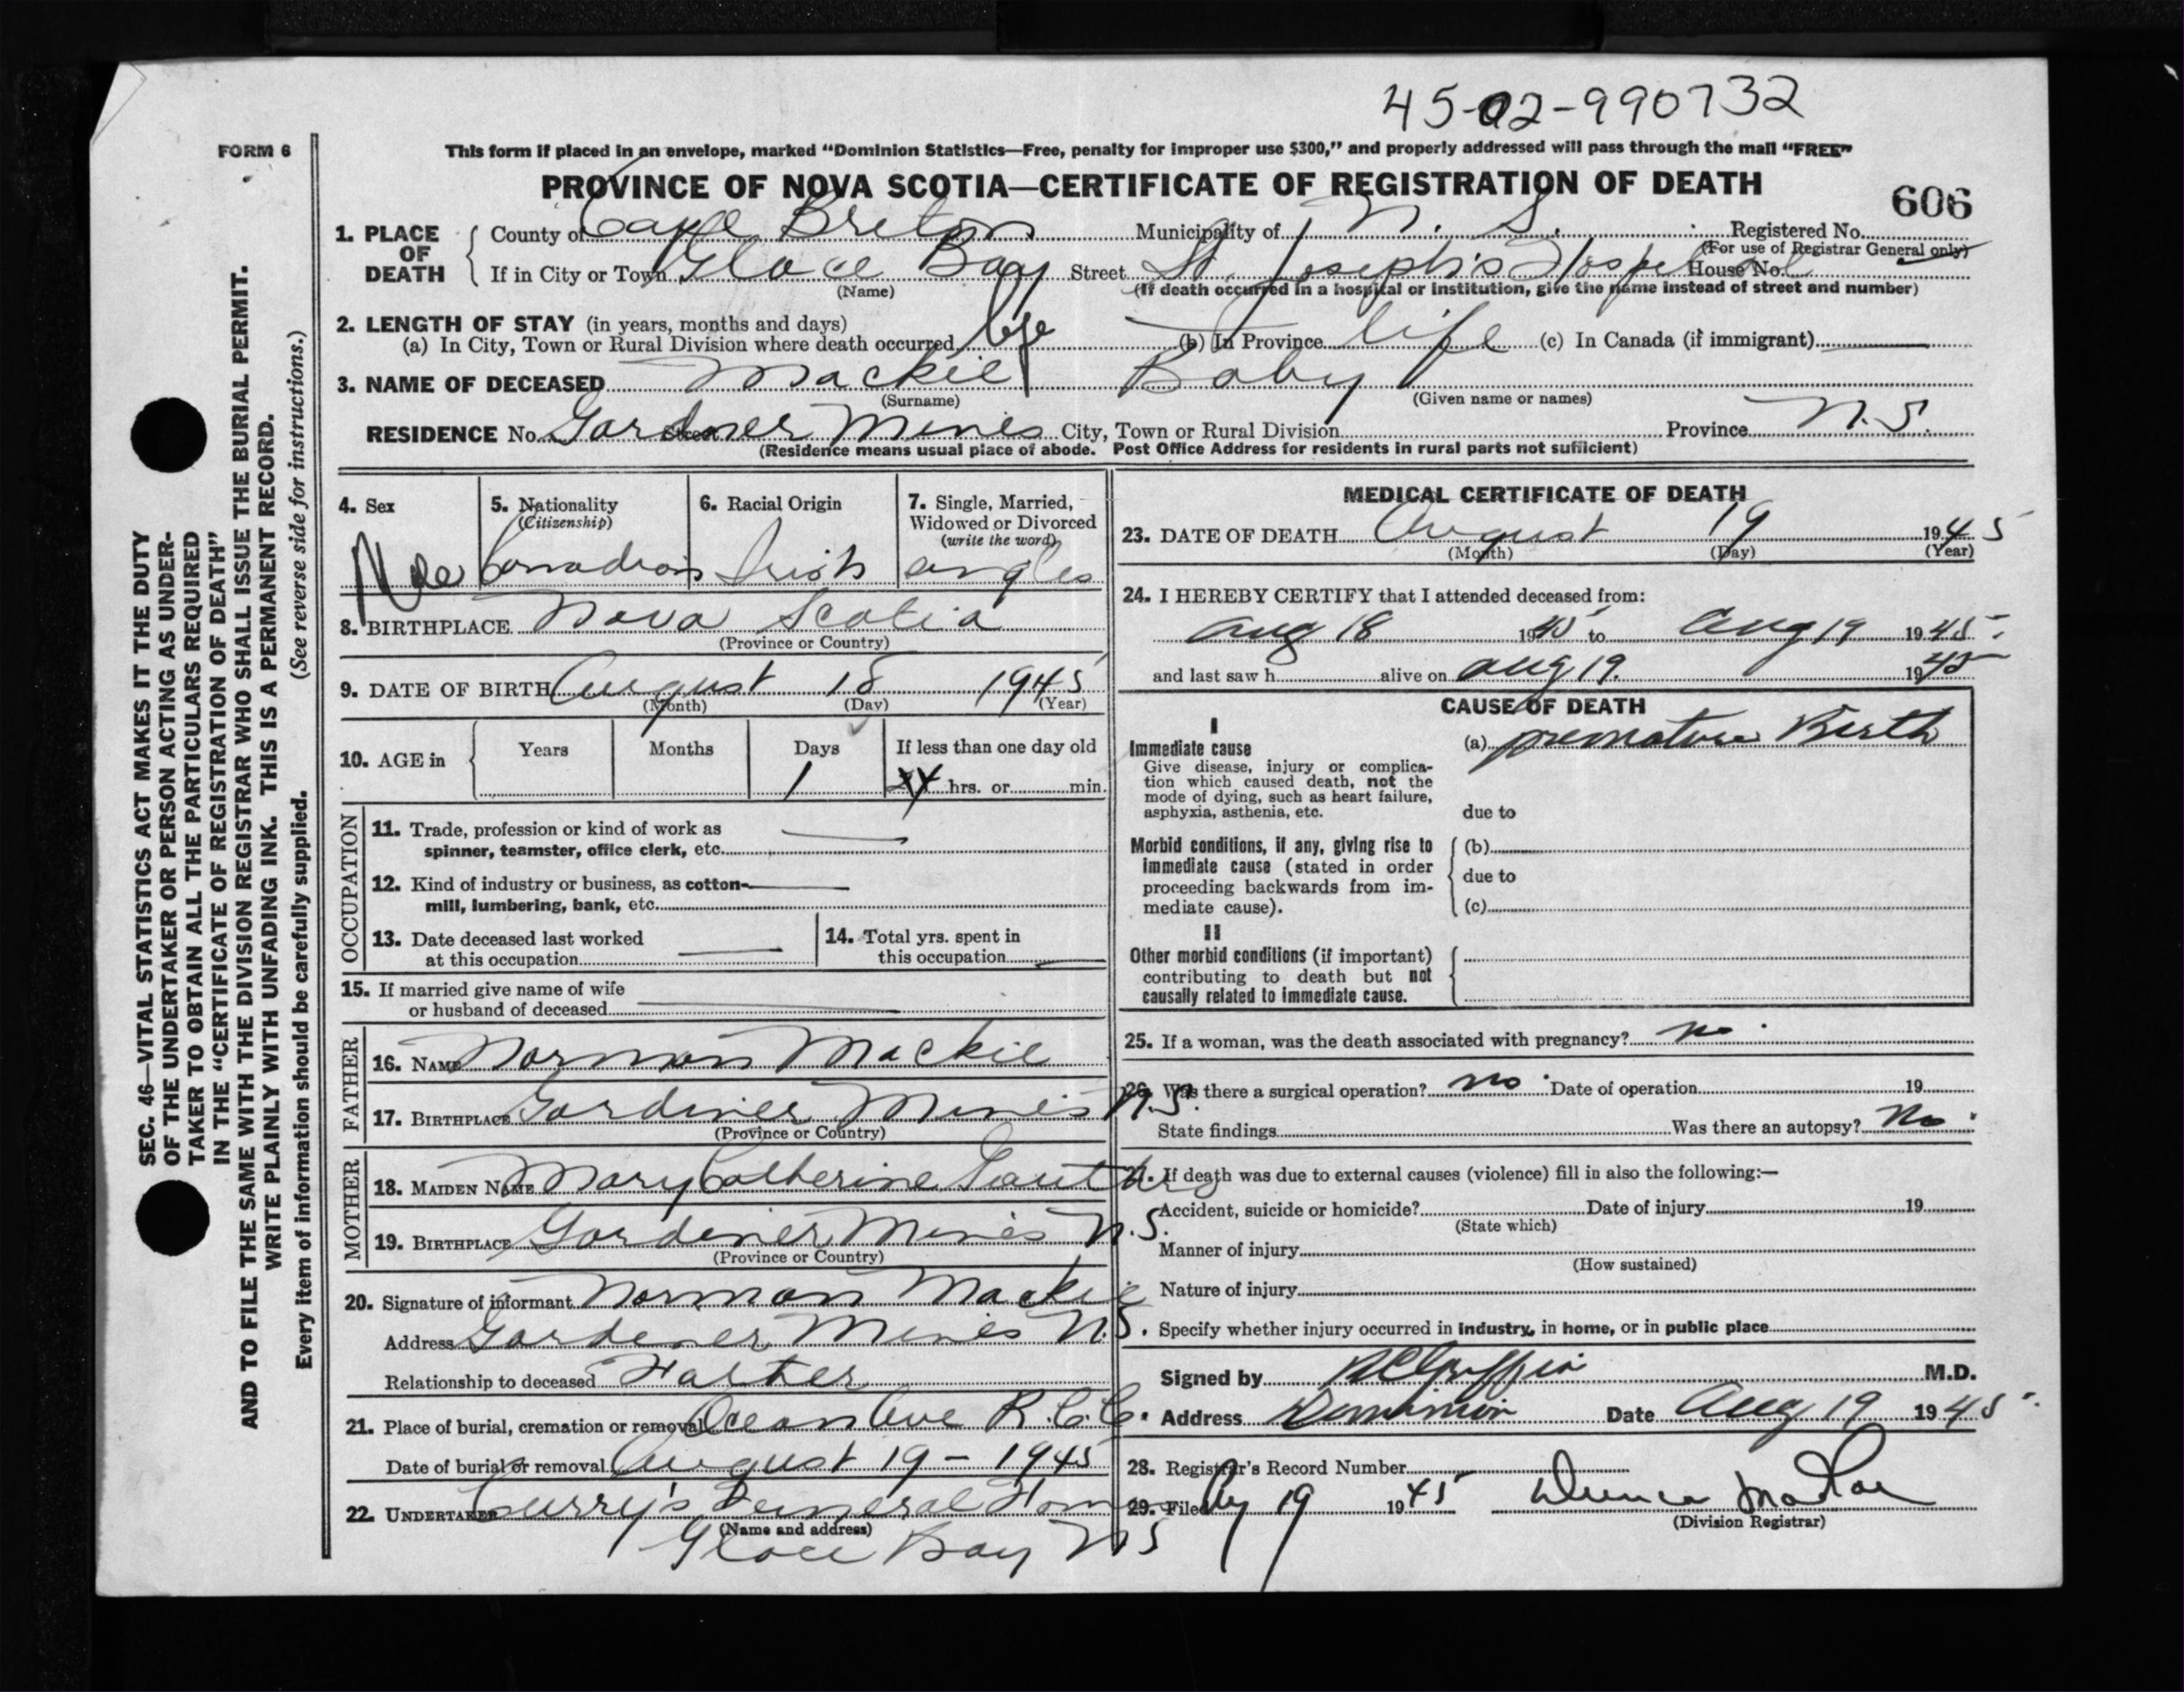 45-02-990732
FORM 6
This form if placed in an envelope, marked “Dominion Statistics—Free, penalty for improper use $300,” and properly addressed will pass through the mail “FREE”
PROVINCE OF NOVA SCOTIA—CERTIFICATE OF REGISTRATION OF DEATH
606
1. PLACE OF DEATH
County of Cape Breton Municipality of N. S. Registered No.
(For use of Registrar General only)
If in City or Town Glace Bay Street St. Joseph's Hospital House No.
(Name) (If death occurred in a hospital or institution, give the name instead of street and number)
2. LENGTH OF STAY (in years, months and days)
(a) In City, Town or Rural Division where death occurred life (b) In Province life (c) In Canada (if immigrant)
3. NAME OF DECEASED Mackie Baby
(Surname) (Given name or names)
RESIDENCE No. Street Gardner Mines City, Town or Rural Division Province N.S.
(Residence means usual place of abode. Post Office Address for residents in rural parts not sufficient)
4. Sex
5. Nationality (Citizenship) Canadian
6. Racial Origin Irish
7. Single, Married, Widowed or Divorced (write the word)
8. BIRTHPLACE Nova Scotia
(Province or Country)
9. DATE OF BIRTH August 18 1945
(Month) (Day) (Year)
10. AGE in Years Months Days If less than one day old
1 24 hrs. or min.
OCCUPATION
11. Trade, profession or kind of work as
spinner, teamster, office clerk, etc.
12. Kind of industry or business, as cotton-
mill, lumbering, bank, etc.
13. Date deceased last worked
at this occupation
14. Total yrs. spent in
this occupation
15. If married give name of wife
or husband of deceased
FATHER
16. NAME Norman Mackie
17. BIRTHPLACE Gardiner Mines N.S.
(Province or Country)
MOTHER
18. MAIDEN NAME Mary Catherine
19. BIRTHPLACE Gardener Mines N.S.
(Province or Country)
20. Signature of informant Norman Mackie
Address Gardener Mines N.S.
Relationship to deceased Farther
21. Place of burial, cremation or removal Ocean Ave R.C.C.
Date of burial or removal August 19 - 1945
22. UNDERTAKER Curry's Funeral Home
(Name and address)
Glace Bay N S
MEDICAL CERTIFICATE OF DEATH
23. DATE OF DEATH August 19 1945
(Month) (Day) (Year)
24. I HEREBY CERTIFY that I attended deceased from:
Aug 18 1945 to Aug 19 1945
and last saw h alive on Aug 19. 1945
CAUSE OF DEATH
I
Immediate cause
Give disease, injury or complica-
tion which caused death, not the
mode of dying, such as heart failure,
asphyxia, asthenia, etc.
(a) premature Birth
due to
Morbid conditions, if any, giving rise to
immediate cause (stated in order
proceeding backwards from im-
mediate cause).
(b)
due to
(c)
II
Other morbid conditions (if important)
contributing to death but not
causally related to immediate cause.
25. If a woman, was the death associated with pregnancy? no
26. Was there a surgical operation? no Date of operation 19
State findings Was there an autopsy? No
If death was due to external causes (violence) fill in also the following:—
Accident, suicide or homicide? Date of injury 19
(State which)
Manner of injury
(How sustained)
Nature of injury
Specify whether injury occurred in industry, in home, or in public place
Signed by M.D.
Address Dominion Date Aug 19 1945
28. Registrar's Record Number
29. Filed 19 1945
(Division Registrar)
SEC. 46—VITAL STATISTICS ACT MAKES IT THE DUTY
OF THE UNDERTAKER OR PERSON ACTING AS UNDER-
TAKER TO OBTAIN ALL THE PARTICULARS REQUIRED
IN THE “CERTIFICATE OF REGISTRATION OF DEATH”
AND TO FILE THE SAME WITH THE DIVISION REGISTRAR WHO SHALL ISSUE THE BURIAL PERMIT.
WRITE PLAINLY WITH UNFADING INK. THIS IS A PERMANENT RECORD.
Every item of information should be carefully supplied. (See reverse side for instructions.)